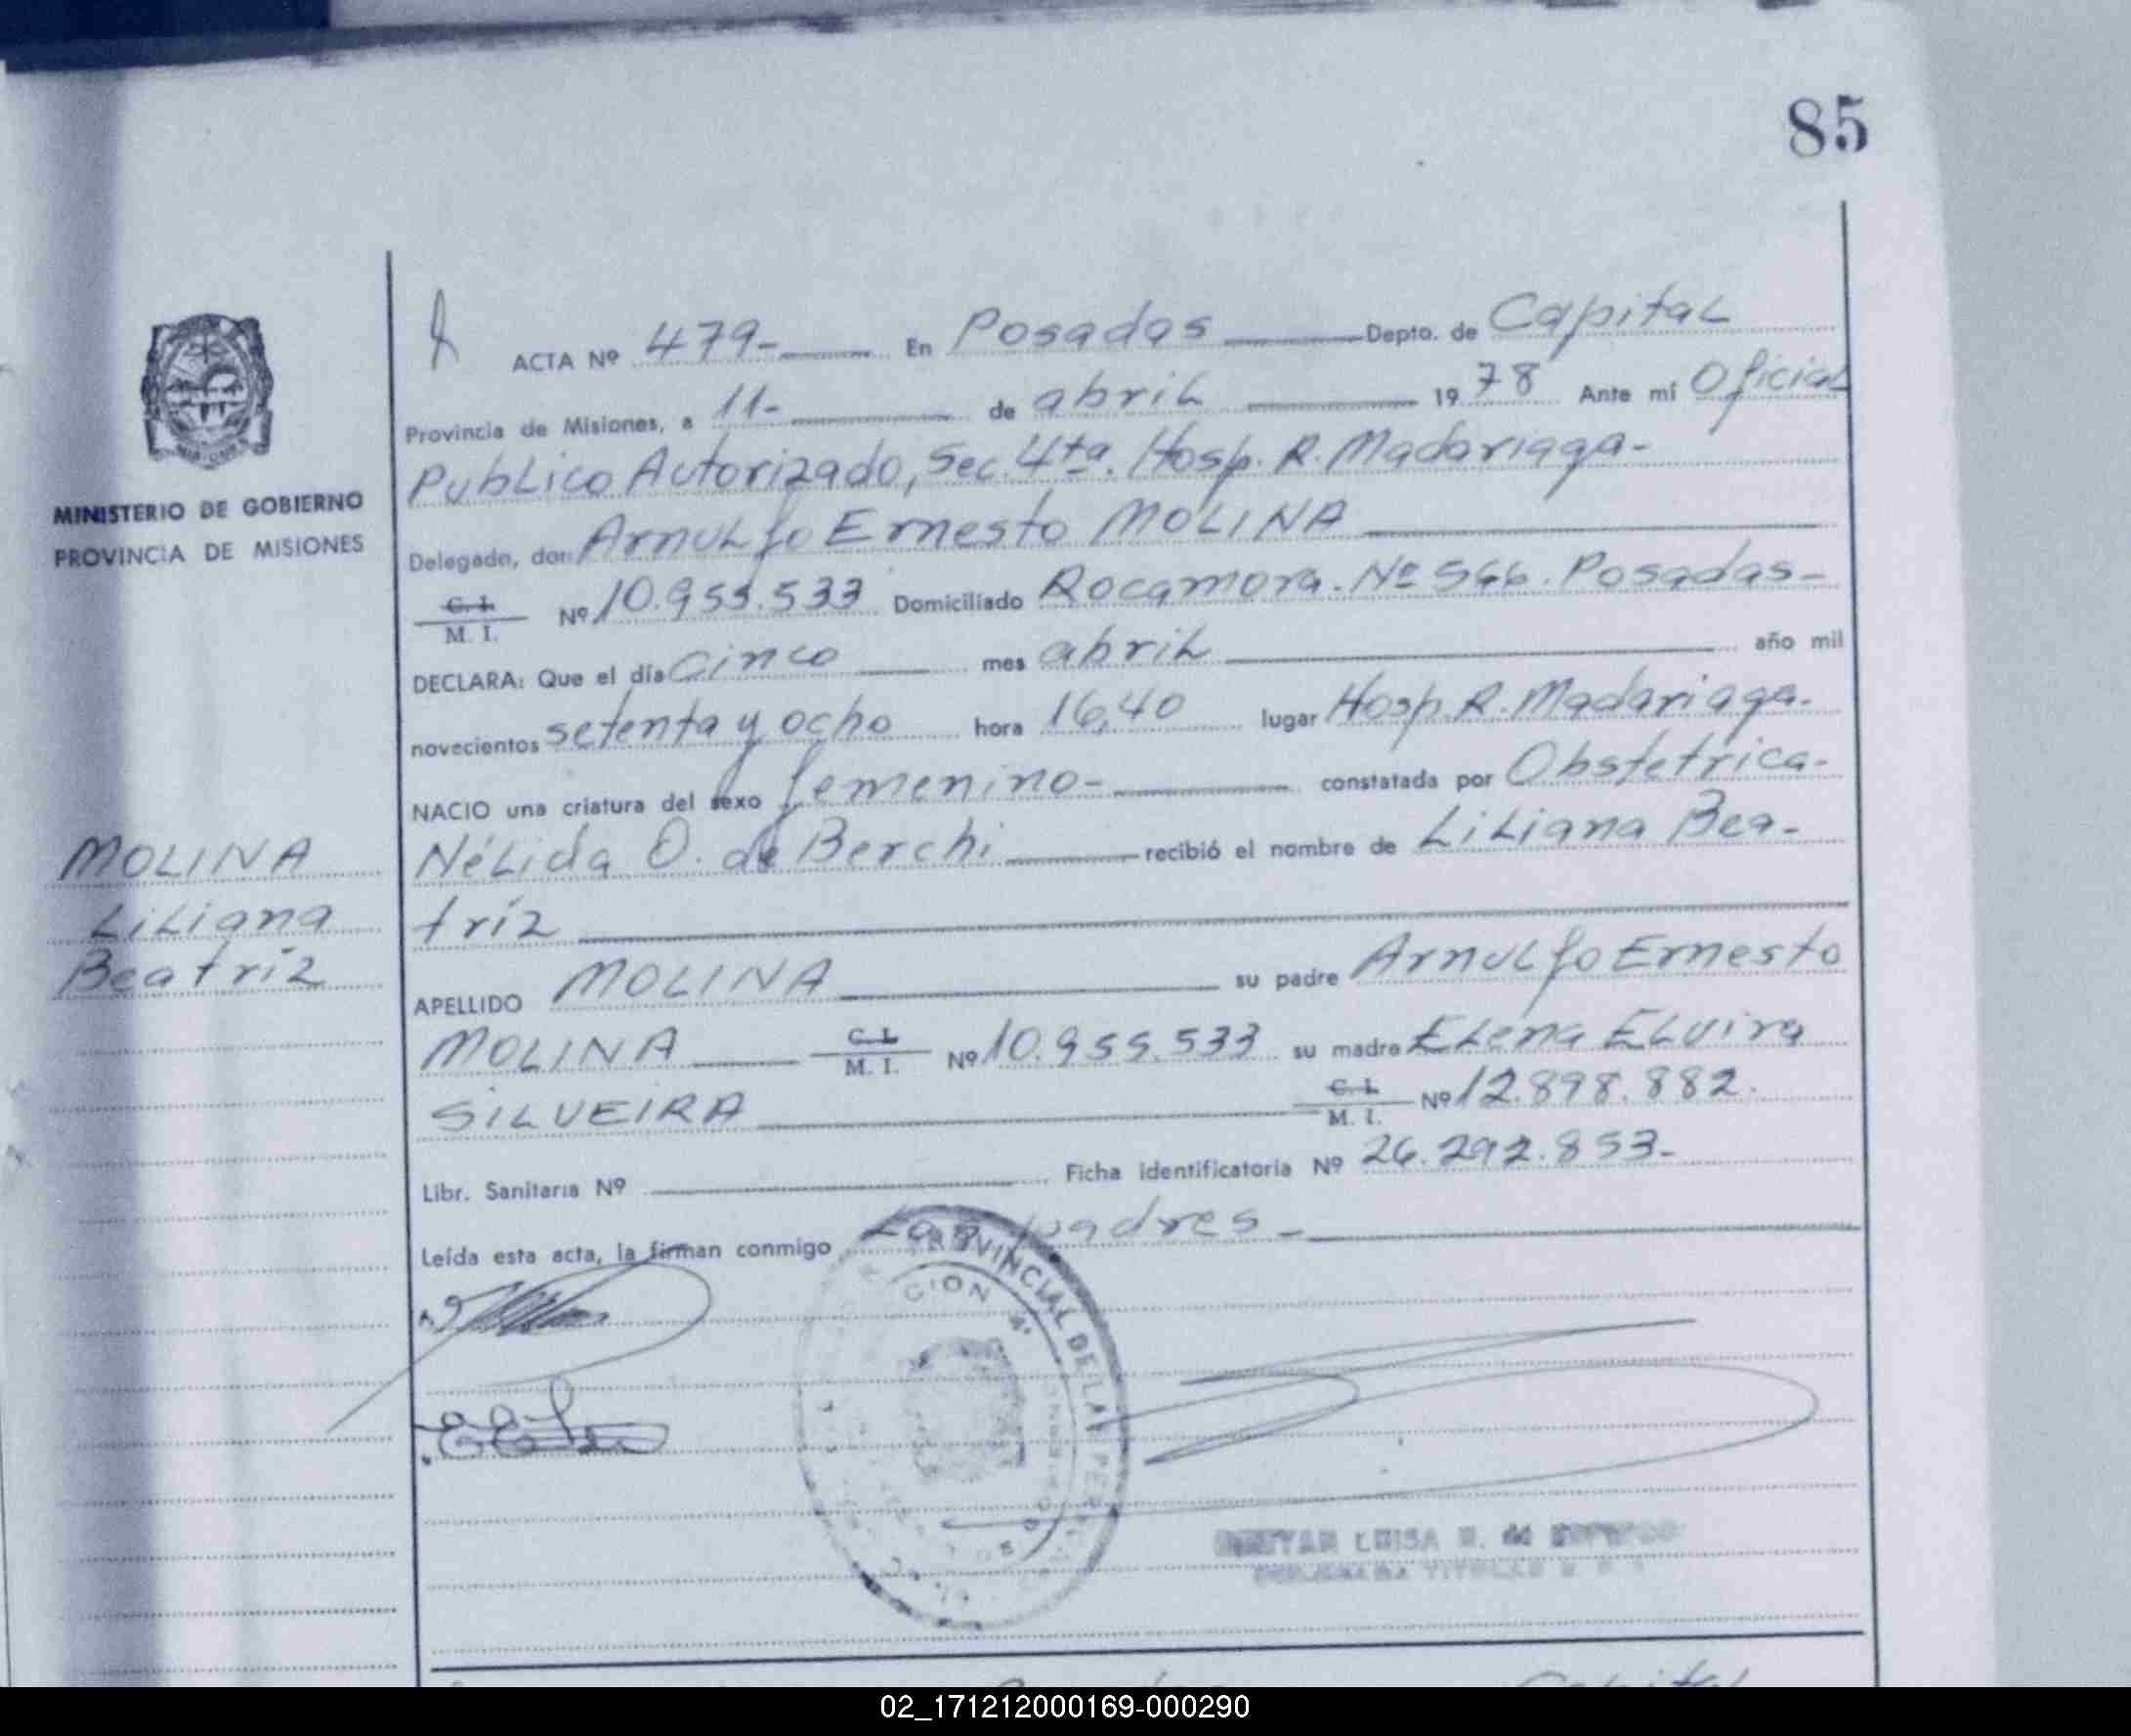 85
MINISTERIO DE GOBIERNO
PROVINCIA DE MISIONES
MOLINA
Liliana
Beatríz
ACTA Nº 479- En Posadas Depto. de Capital
Provincia de Misiones, a 11- de abril 1978 Ante mí Oficial
Publico Autorizado, Sec. 4ta. Hosp. R. Madariaga-
Delegado, don Arnulfo Ernesto MOLINA
C. I. M. I. Nº 10.955.533 Domiciliado Rocamora. Nº 566. Posadas-
DECLARA: Que el día cinco mes abril año mil
novecientos setenta y ocho hora 16,40 lugar Hosp. R. Madariaga.
NACIO una criatura del sexo femenino- constatada por Obstetrica-
Nélida O. de Berchi recibió el nombre de Liliana Bea-
tríz
APELLIDO MOLINA su padre Arnulfo Ernesto
MOLINA C. I. M. I. Nº 10.955.533 su madre Elena Elvira
SILVEIRA C. I. M. I. Nº 12.898.882.
Libr. Sanitaria Nº Ficha identificatoria Nº 26.292.853-
Leída esta acta, la firman conmigo Los padres-
PROVINCIAL DE LAS
LUISA
02_171212000169-000290